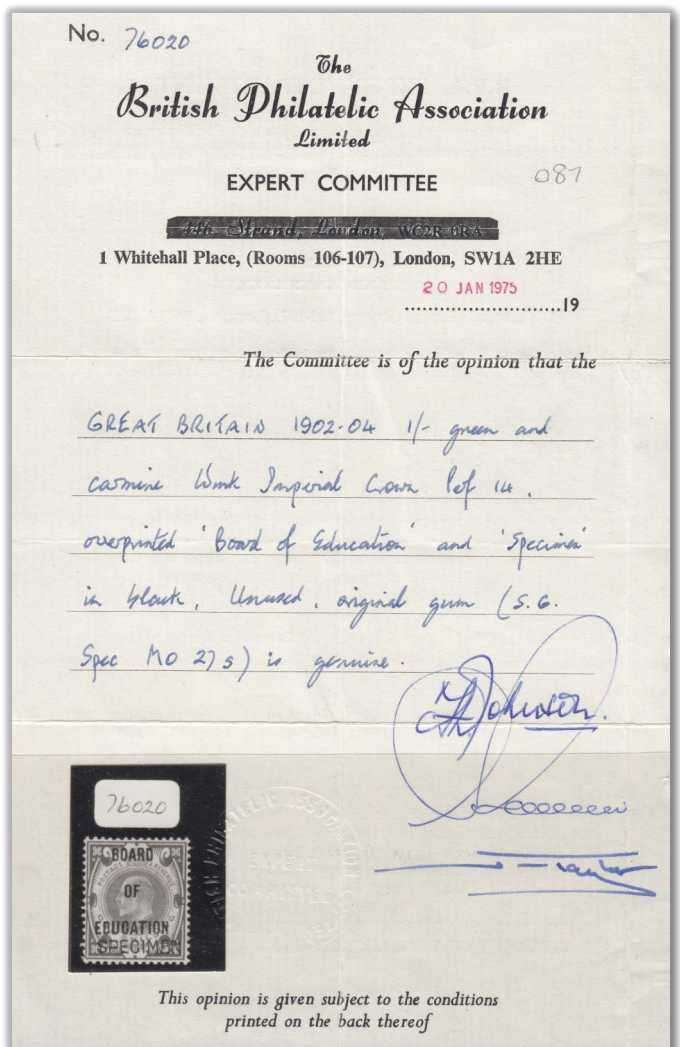 No. 76020
The
British Philatelic Association
Limited
EXPERT COMMITTEE
087
446 Strand, London, WC2R 0RA
1 Whitehall Place, (Rooms 106-107), London, SW1A 2HE
20 JAN 1975
19
The Committee is of the opinion that the
GREAT BRITAIN 1902-04 1/- green and
carmine Wmk Imperial Crown Perf 14.
overprinted 'Board of Education' and 'Specimen'
in black. Unused, original gum (S.G.
Spec MO 27s) is genuine.
Johnson.
76020
BOARD
OF
EDUCATION
SPECIMEN
PHILATELIC ASSOCIATION
This opinion is given subject to the conditions
printed on the back thereof